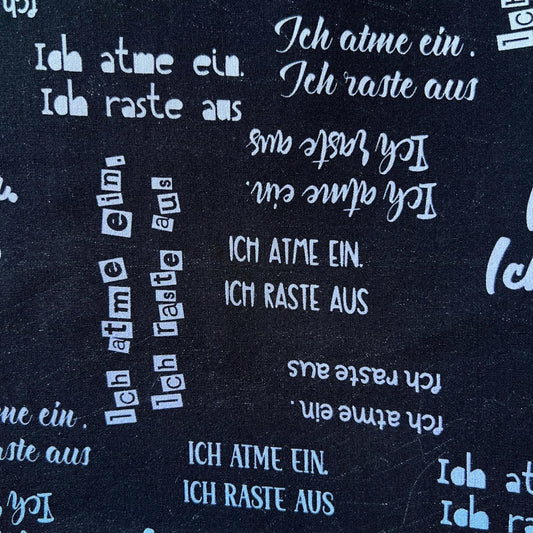 Ich atme ein.
Ich raste aus
Ich atme ein.
Ich raste aus
Ich
Ich atme ein.
Ich raste aus
Ich atme ein.
Ich raste aus
ICH ATME EIN.
ICH RASTE AUS
Ich
Ich atme ein.
Ich raste aus
me ein.
raste aus
ICH ATME EIN.
ICH RASTE AUS
Ich at
Ich ra
Ich